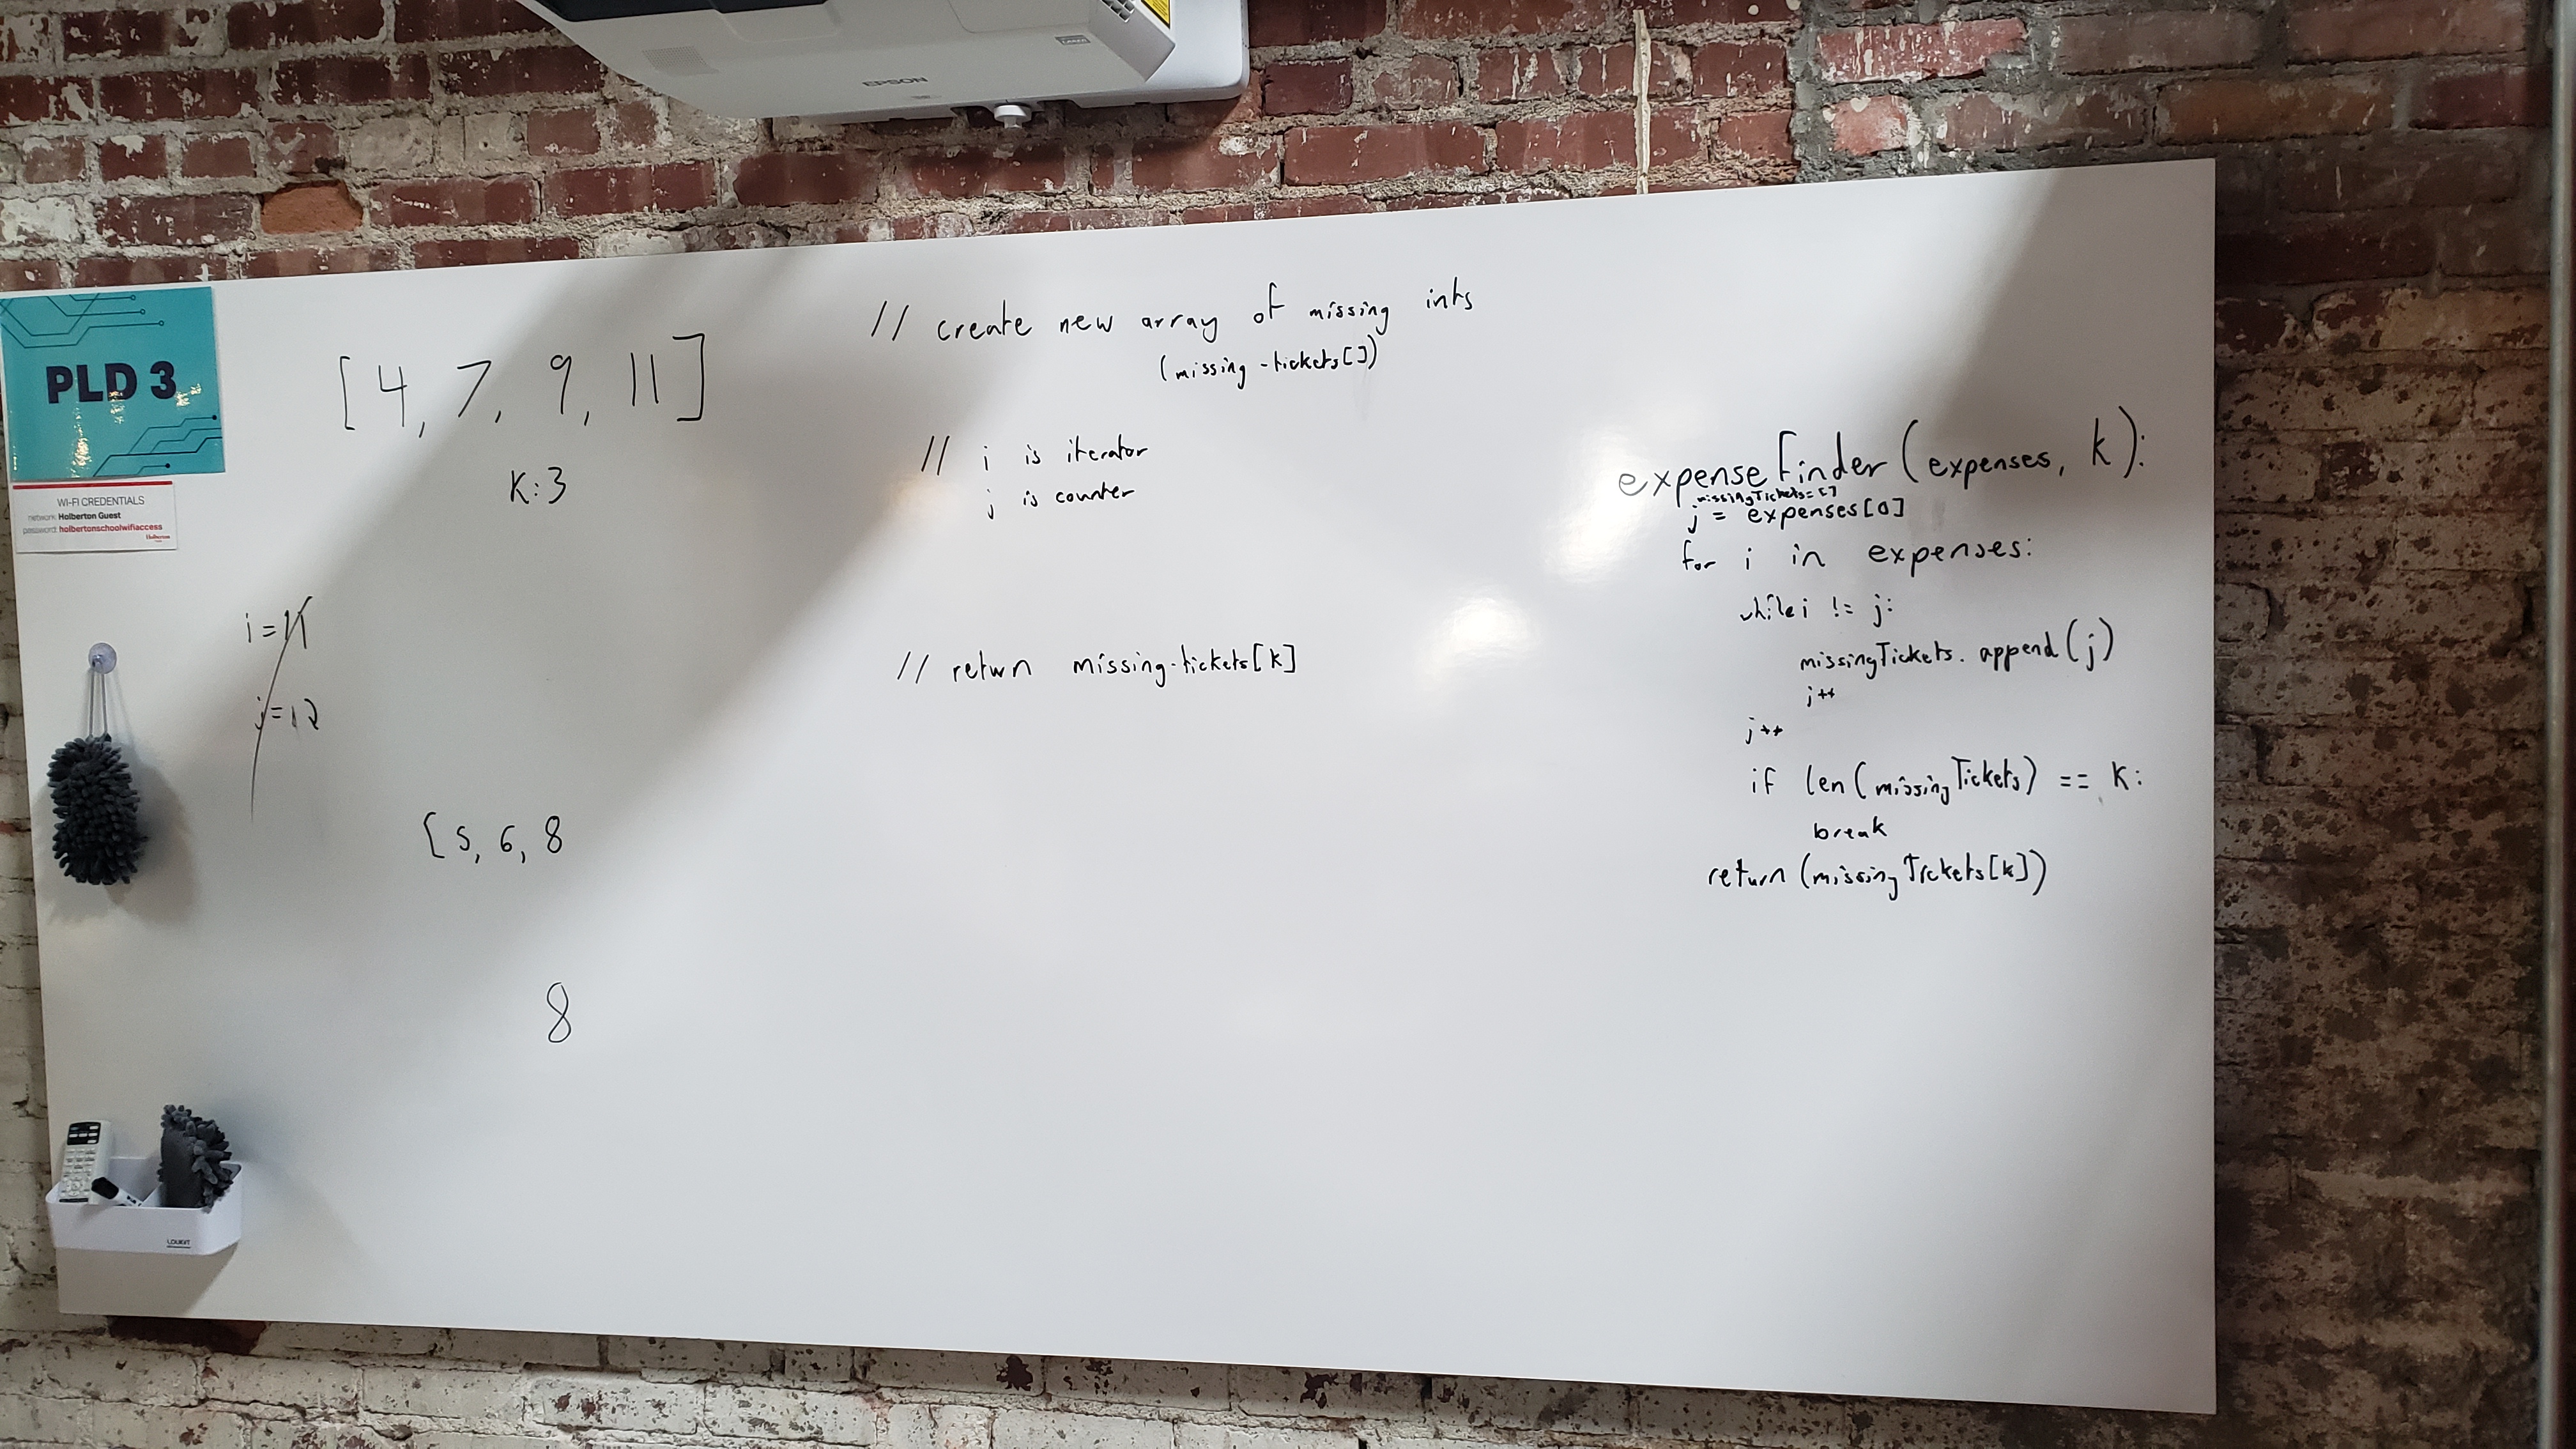 EPSON
PLD 3
WI-FI CREDENTIALS
network: Holberton Guest
password: holbertonschoolwifiaccess
Holberton
[4, 7, 9, 11]
K:3
i=11
j=12
[5, 6, 8
8
// create new array of missing ints
(missing-tickets[])
// i is iterator
j is counter
// return missing-tickets[k]
expenseFinder(expenses, k):
missingTickets=[]
j = expenses[0]
for i in expenses:
while i != j:
missingTickets.append(j)
j++
j++
if len(missingTickets) == K:
break
return(missingTickets[k])
LOUKIT